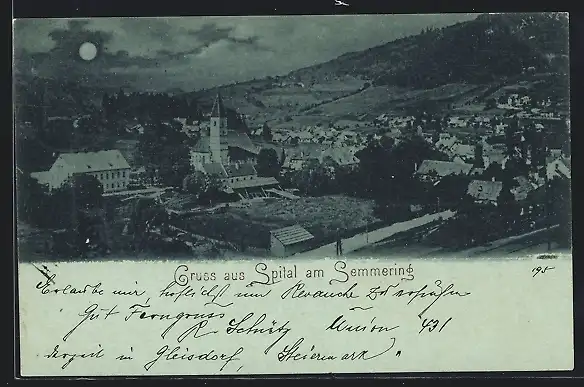 Gruss aus Spital am Semmering
195
Erlaube mir, höflichst um Revanche zu
Gut Ferngruss
R. Schütz Union 431
derzeit in Gleisdorf, Steiermark